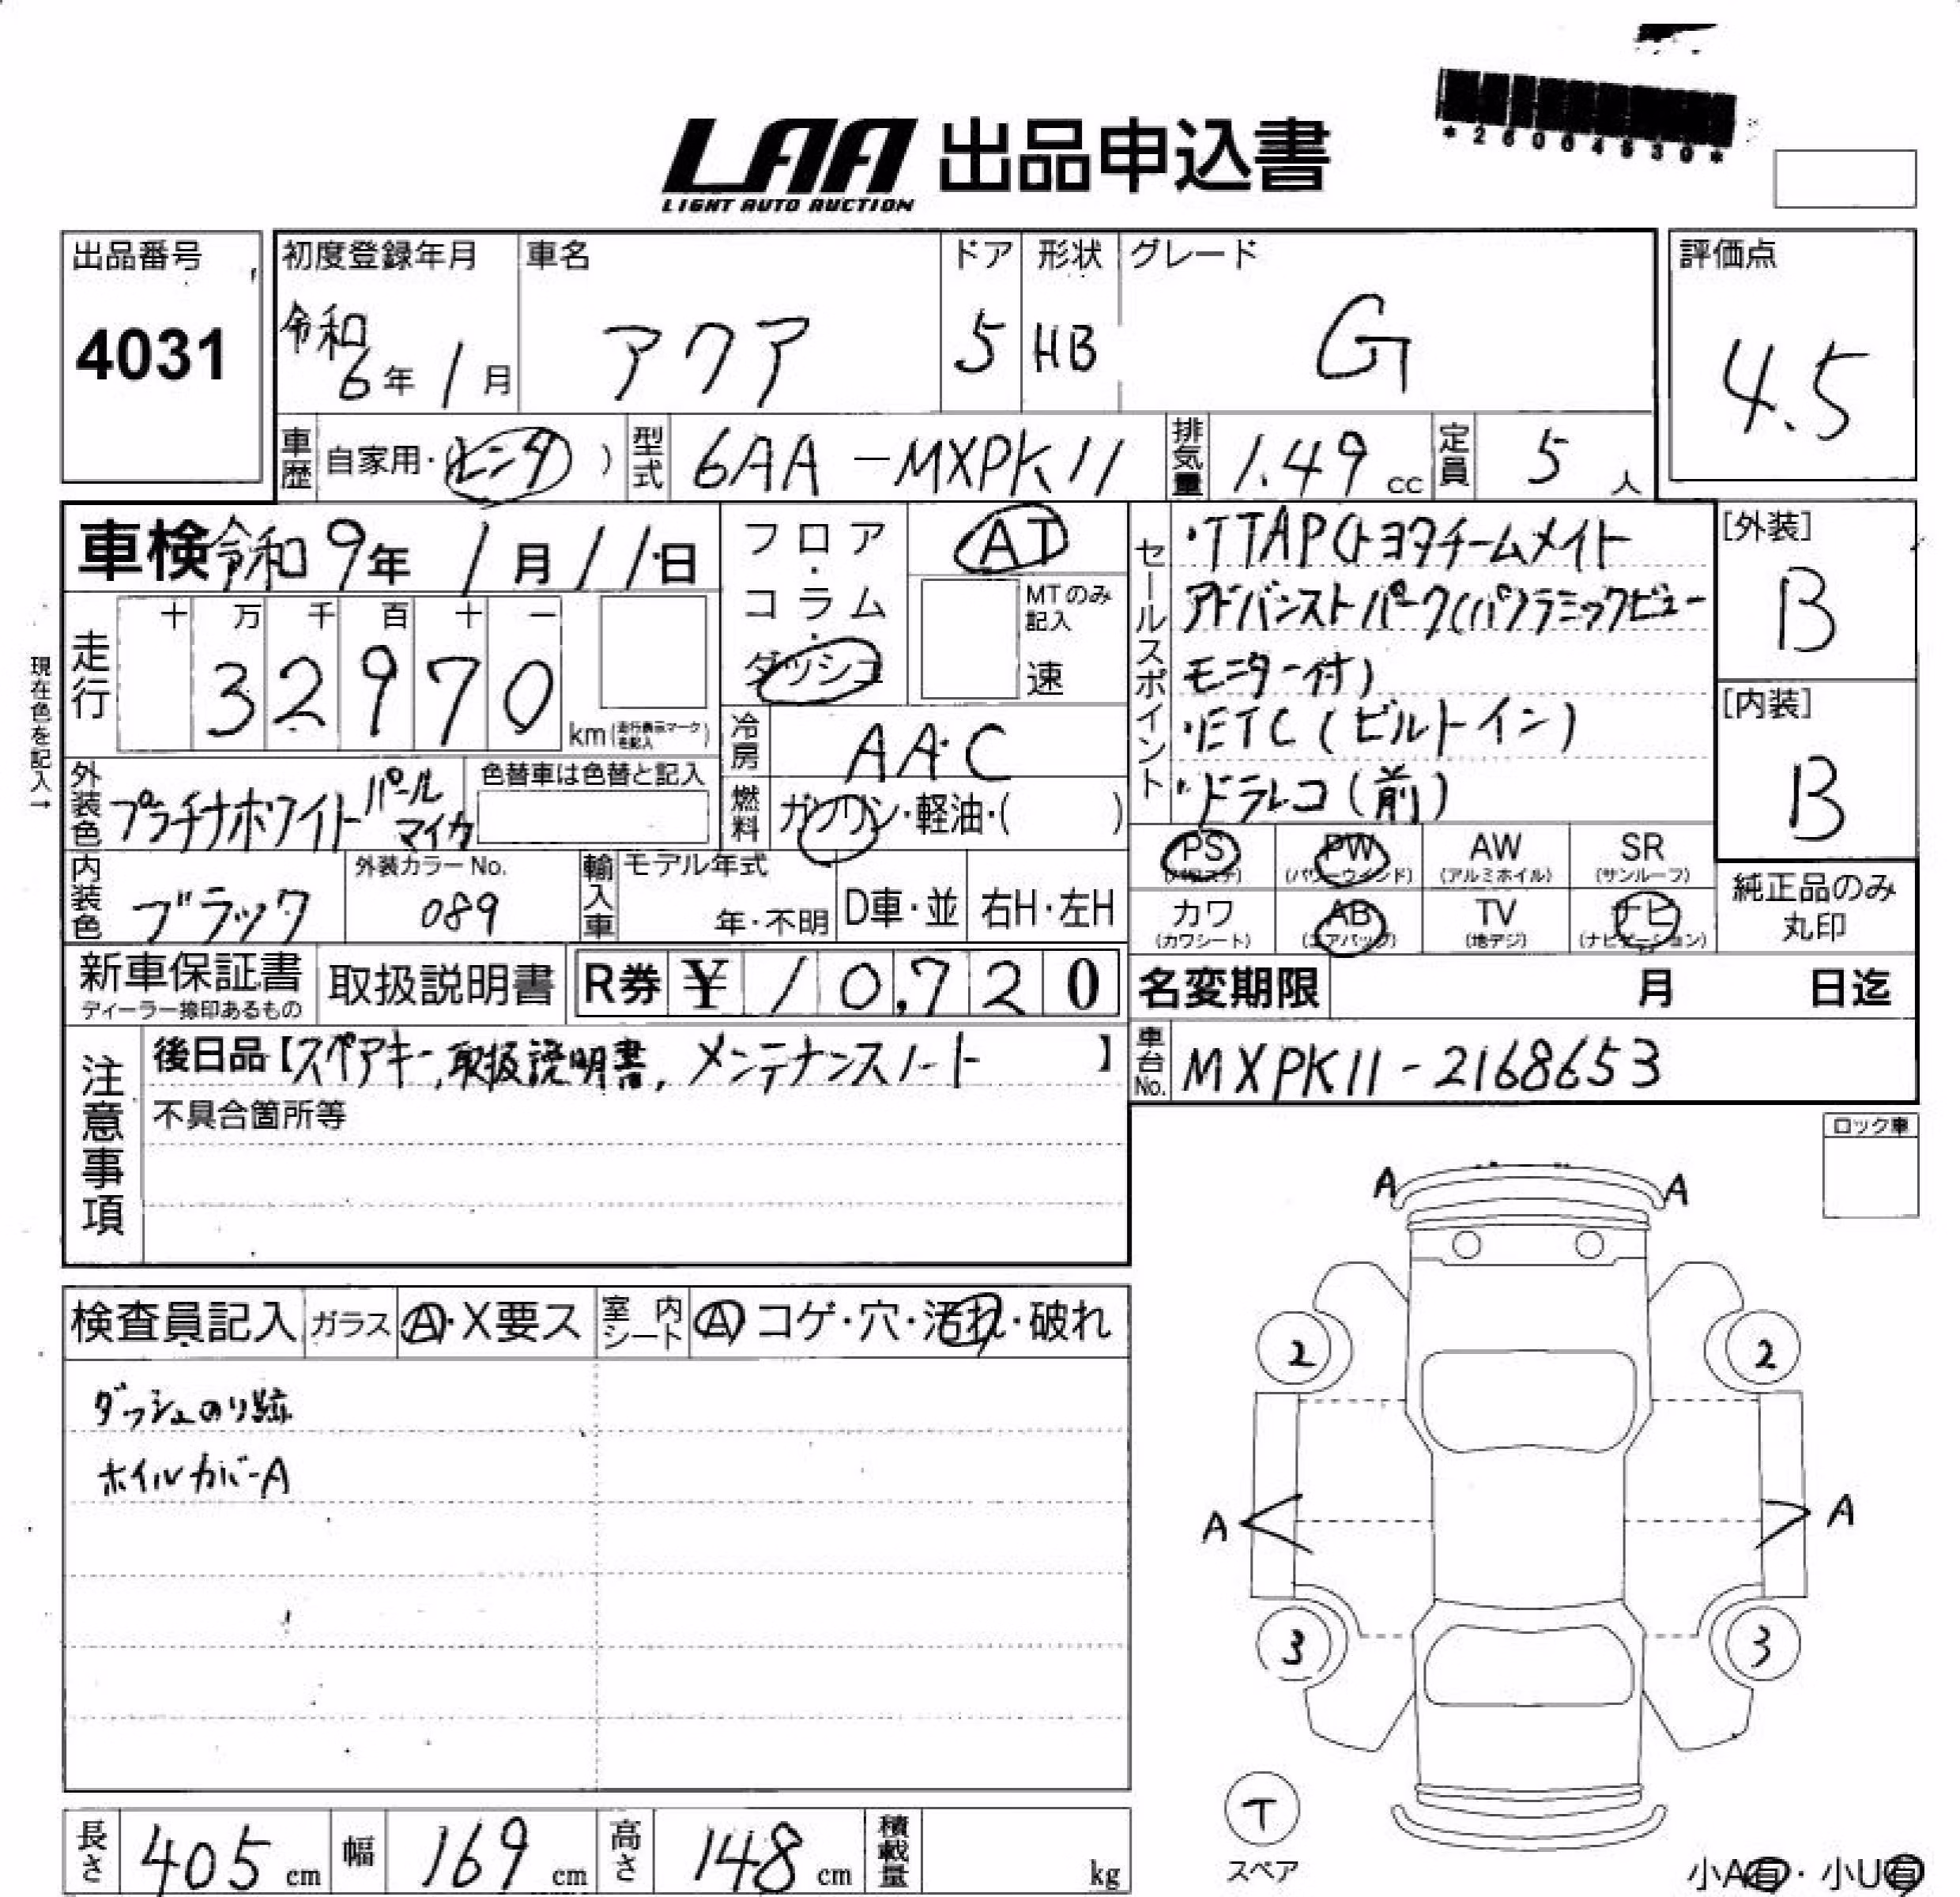 *26004630*
LAA 出品申込書
LIGHT AUTO AUCTION
出品番号 初度登録年月 車名 ドア 形状 グレード 評価点
4031 令和6年1月 アクア 5 HB G 4.5
車歴 自家用・(レンタ) 型式 6AA-MXPK11 排気量 1.49cc 定員 5人
車検 令和9年1月11日 フロア・コラム・ダッシュ AT
MTのみ記入 速
走行 十 万 千 百 十 一
32970 km(走行表示マークを記入)
現在色を記入→
セールスポイント
・TTAP(トヨタチームメイト
アドバンストパーク(パノラミックビュー
モニター付)
・ETC(ビルトイン)
・ドラレコ(前)
[外装]
B
[内装]
B
冷房 AAC
外装色 プラチナホワイトパールマイカ 色替車は色替と記入 燃料 ガソリン・軽油・( )
PS (パワステ) PW (パワーウインド) AW (アルミホイル) SR (サンルーフ)
カワ (カワシート) AB (エアバッグ) TV (地デジ) ナビ (ナビゲーション)
純正品のみ
丸印
内装色 ブラック 外装カラーNo. 089 輸入車 モデル年式 年・不明 D車・並 右H・左H
新車保証書 ディーラー捺印あるもの 取扱説明書 R券 ¥10,720 名変期限 月 日迄
注意事項 後日品【スペアキー,取扱説明書,メンテナンスノート】 車台No. MXPK11-2168653
不具合箇所等
ロック車
A A
検査員記入 ガラス A・X要ス 室内シート A コゲ・穴・汚れ・破れ
2 2
ダッシュのり跡
ホイルカバーA
A A
3 3
T
スペア
長さ 405cm 幅 169cm 高さ 148cm 積載量 kg
小A有・小U有